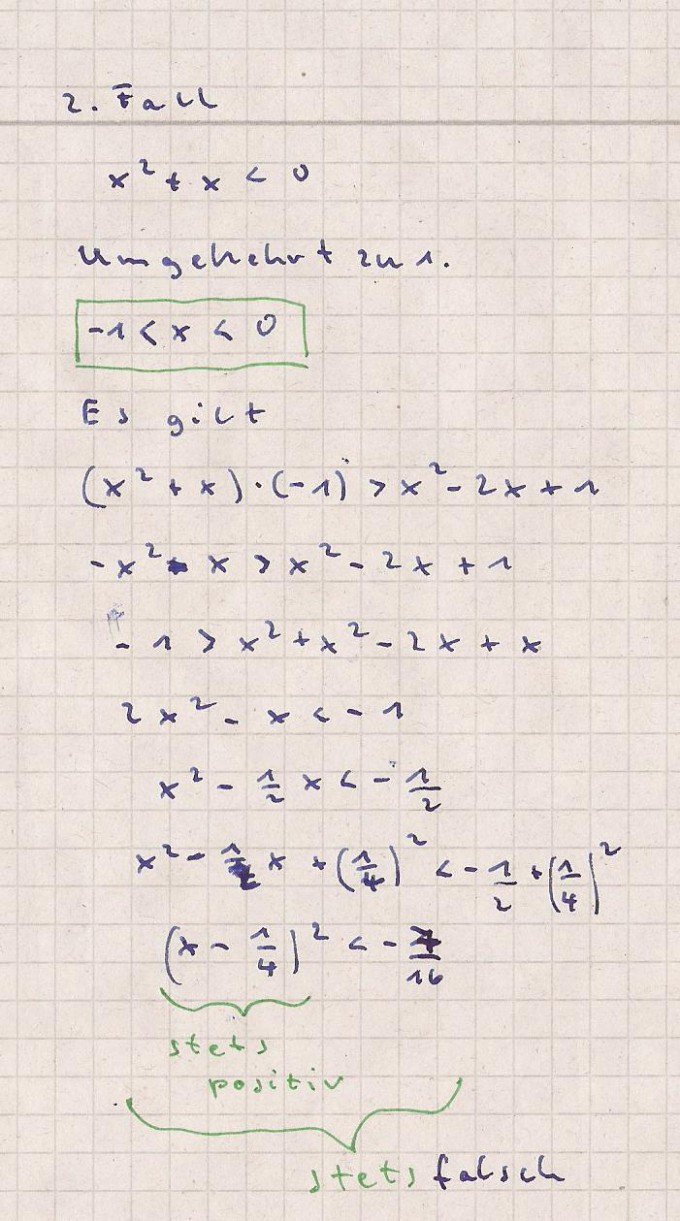 2. Fall
x² + x < 0
Umgekehrt zu 1.
-1 < x < 0
Es gilt
(x² + x) · (-1) > x² - 2x + 1
-x² - x > x² - 2x + 1
-1 > x² + x² - 2x + x
2x² - x < -1
x² - 1/2 x < - 1/2
x² - 1/2 x + (1/4)² < - 1/2 + (1/4)²
(x - 1/4)² < - 7/16
stets
positiv
stets falsch